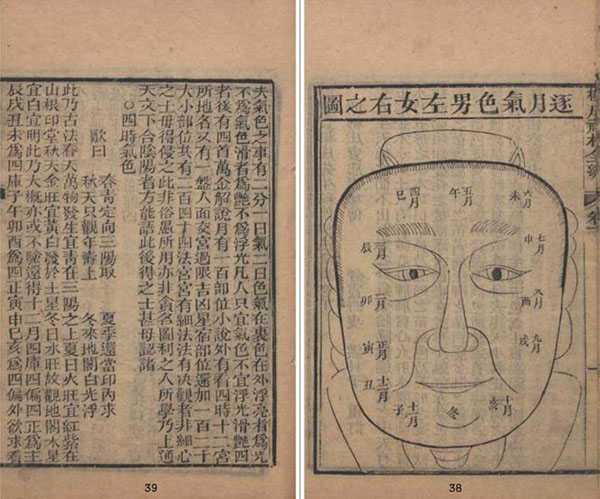 逐月氣色男左女右之圖
六月
未
五月
午
四月
巳
七月
申
三月
辰
八月
酉
二月
卯
九月
戌
正月
寅
十二月
丑
十月
亥
十一月
子
冬
38
夫氣色之事有二分一曰氣二曰色氣在裏色在外浮亮者爲光
不爲氣色滑者爲艷不爲浮光凡人只宜氣色不宜浮光滑艷四
者後有四首萬金解說月有一百部位小說外有看四時十二宮
所地名又有一盤人面交宮過限吉凶星宿部位還加一百二十
大小部位共有二百四十四法宮宮有細法法有决觀者非細心
之士毋得侵之此非俗愚所用亦非貪名圖利之人所學乃上通
天文下合陰陽者方能語此後得之士甚毋認諸
○四時氣色
歌曰
春青定向三陽取 夏季還當印內求
秋天只觀年壽上 冬來地閣白光浮
此乃古法春天萬物發生宜青在三陽之上夏曰火旺宜紅紫在
山根印堂秋天金旺宜黃白發於土星冬日水旺故觀地閣水星
宜白宜明此乃大概亦或不驗還得十二月四庫四偏四正爲主
辰戌丑未爲四庫子午卯酉爲四正寅申巳亥爲四偏外欲求看
39